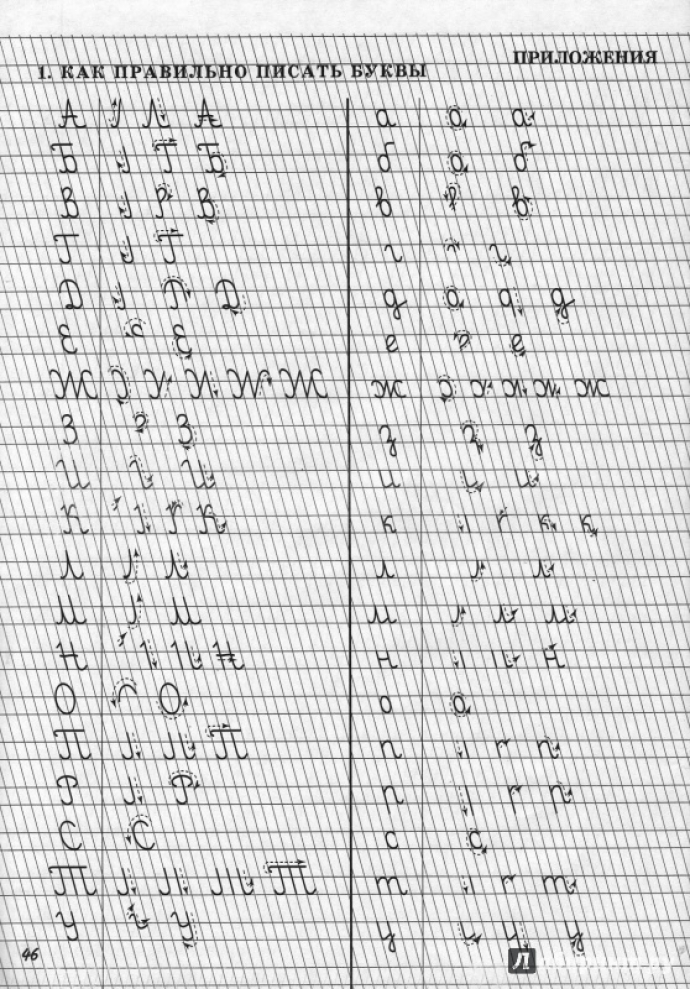 ПРИЛОЖЕНИЯ
1. КАК ПРАВИЛЬНО ПИСАТЬ БУКВЫ
А А а а
Б Б б б
В В в в
Г Г г г
Д Д д д
Е Е е е
Ж Ж ж ж
З З з з
И И и и
К К к к
Л Л л л
М М м м
Н Н н н
О О о о
П П п п
Р Р р р
С С с с
Т Т т т
У У у у
46